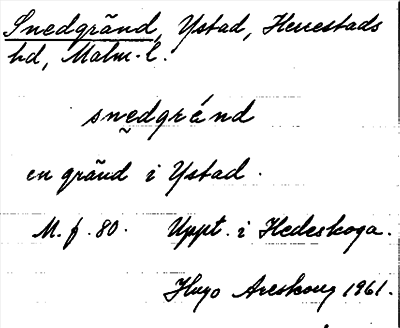 Snedgränd, Ystad, Herrestads
hd, Malm-l.
snedgránd
en gränd i Ystad.
M. f. 80. Uppt. i Hedeskoga.
Hugo Areskoug 1961.